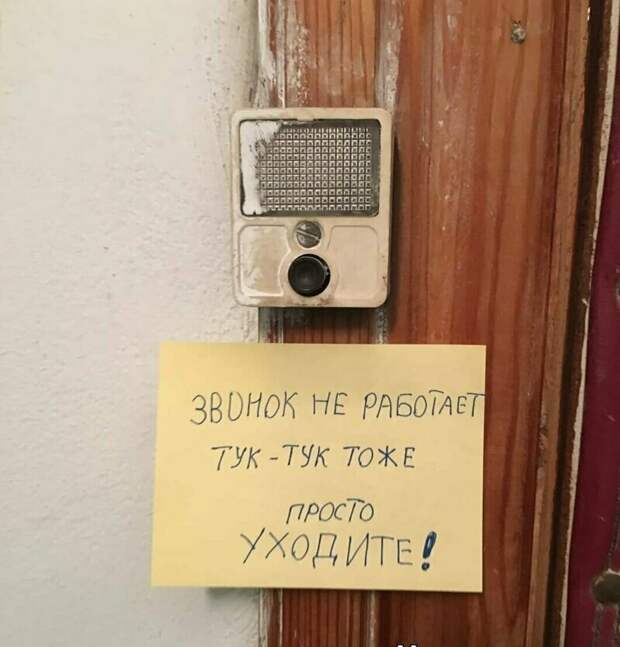 ЗВОНОК НЕ РАБОТАЕТ
ТУК-ТУК ТОЖЕ
ПРОСТО
УХОДИТЕ!